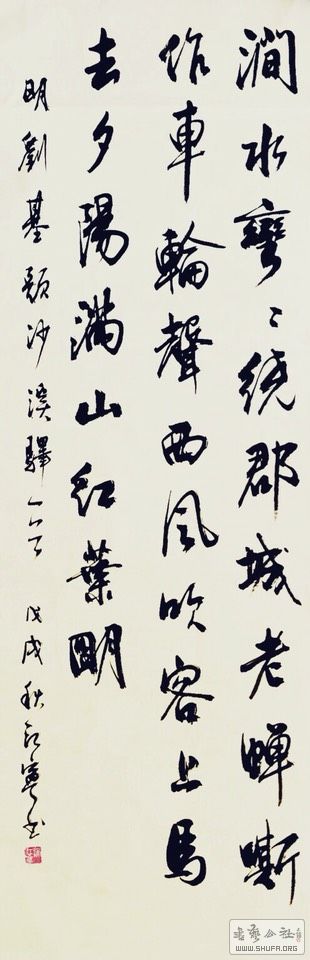 澗水彎〻繞郡城老蟬嘶
作車輪聲西風吹客上馬
去夕陽滿山紅葉明
明劉基題沙溪驛一首 戊戌秋书
書藝公社
WWW.SHUFA.ORG